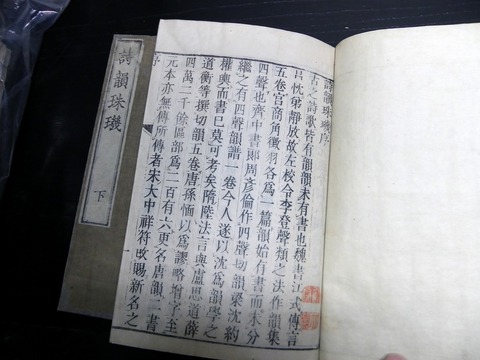 詩韻珠璣序
古之詩歌皆有韻韻未有書也魏書江式傳言
呂忱弟靜放故左校令李登聲類之法作韻集
五卷宮商角徵羽各爲一篇韻始有書而未分
四聲也齊中書郎周彥倫作四聲切韻梁沈約
繼之有四聲韻譜一卷今人遂以沈爲韻學之
權輿而書已莫可考矣隋陸法言與盧思道薛
道衡等撰切韻五卷唐孫愐以爲謬略增字至
四萬二千餘區部爲二百有六更名唐韻二書
元本亦無傳所傳者宋大中祥符改賜新名之
序 一
詩韻珠璣 下